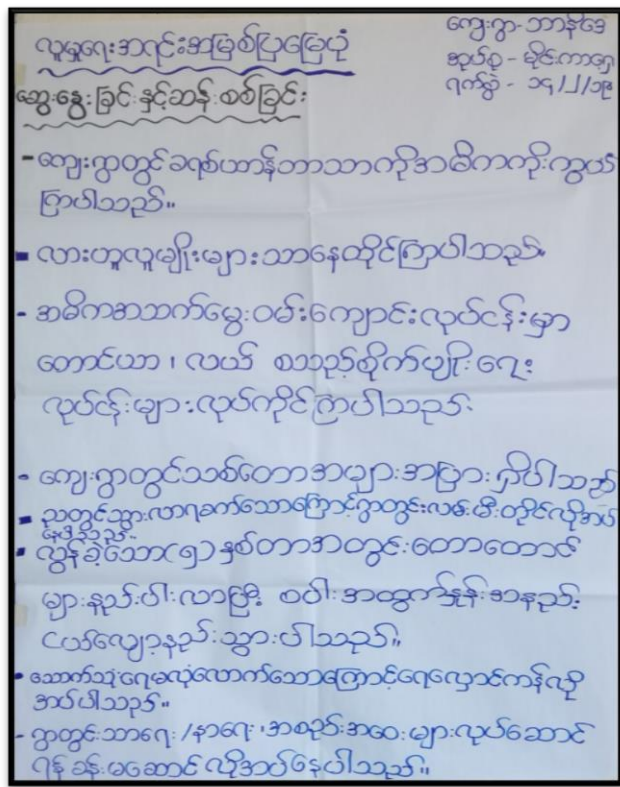 လူမှုရေးအရင်းအမြစ်ပြမြေပုံ
ကျေးရွာ-ဘာနိဒေ
အုပ်စု - မိုင်းကာရှေ
ရက်စွဲ - ၁၄/၂/၁၉
ဆွေးနွေးခြင်းနှင့်ဆန်းစစ်ခြင်း
- ကျေးရွာတွင်ခရစ်ယာန်ဘာသာကိုအဓိကကိုးကွယ်
ကြပါသည်။
- လားဟူလူမျိုးများသာနေထိုင်ကြပါသည်။
- အဓိကအသက်မွေးဝမ်းကျောင်းလုပ်ငန်းမှာ
တောင်ယာ၊ လယ် စသည့်စိုက်ပျိုးရေး
လုပ်ငန်းများလုပ်ကိုင်ကြပါသည်.
- ကျေးရွာတွင်သစ်တောအများအပြားရှိပါသည်
- ညတွင်သွားလာရခက်သောကြောင့်ရွာတွင်းလမ်းမီးတိုင်လိုအပ်
နေပါသည်။
- လွန်ခဲ့သော(၅)နှစ်တာအတွင်းတောတောင်
များနည်းပါးလာပြီး စပါးအထွက်နှုန်းအနည်း
ငယ်လျော့နည်းသွားပါသည်။
- သောက်သုံးရေမလုံလောက်သောကြောင့်ရေလှောင်ကန်လို
အပ်ပါသည်။
- ရွာတွင်းသာရေး/နာရေး၊အစည်းအဝေးများလုပ်ဆောင်
ရန်ခန်းမဆောင်လိုအပ်နေပါသည်။